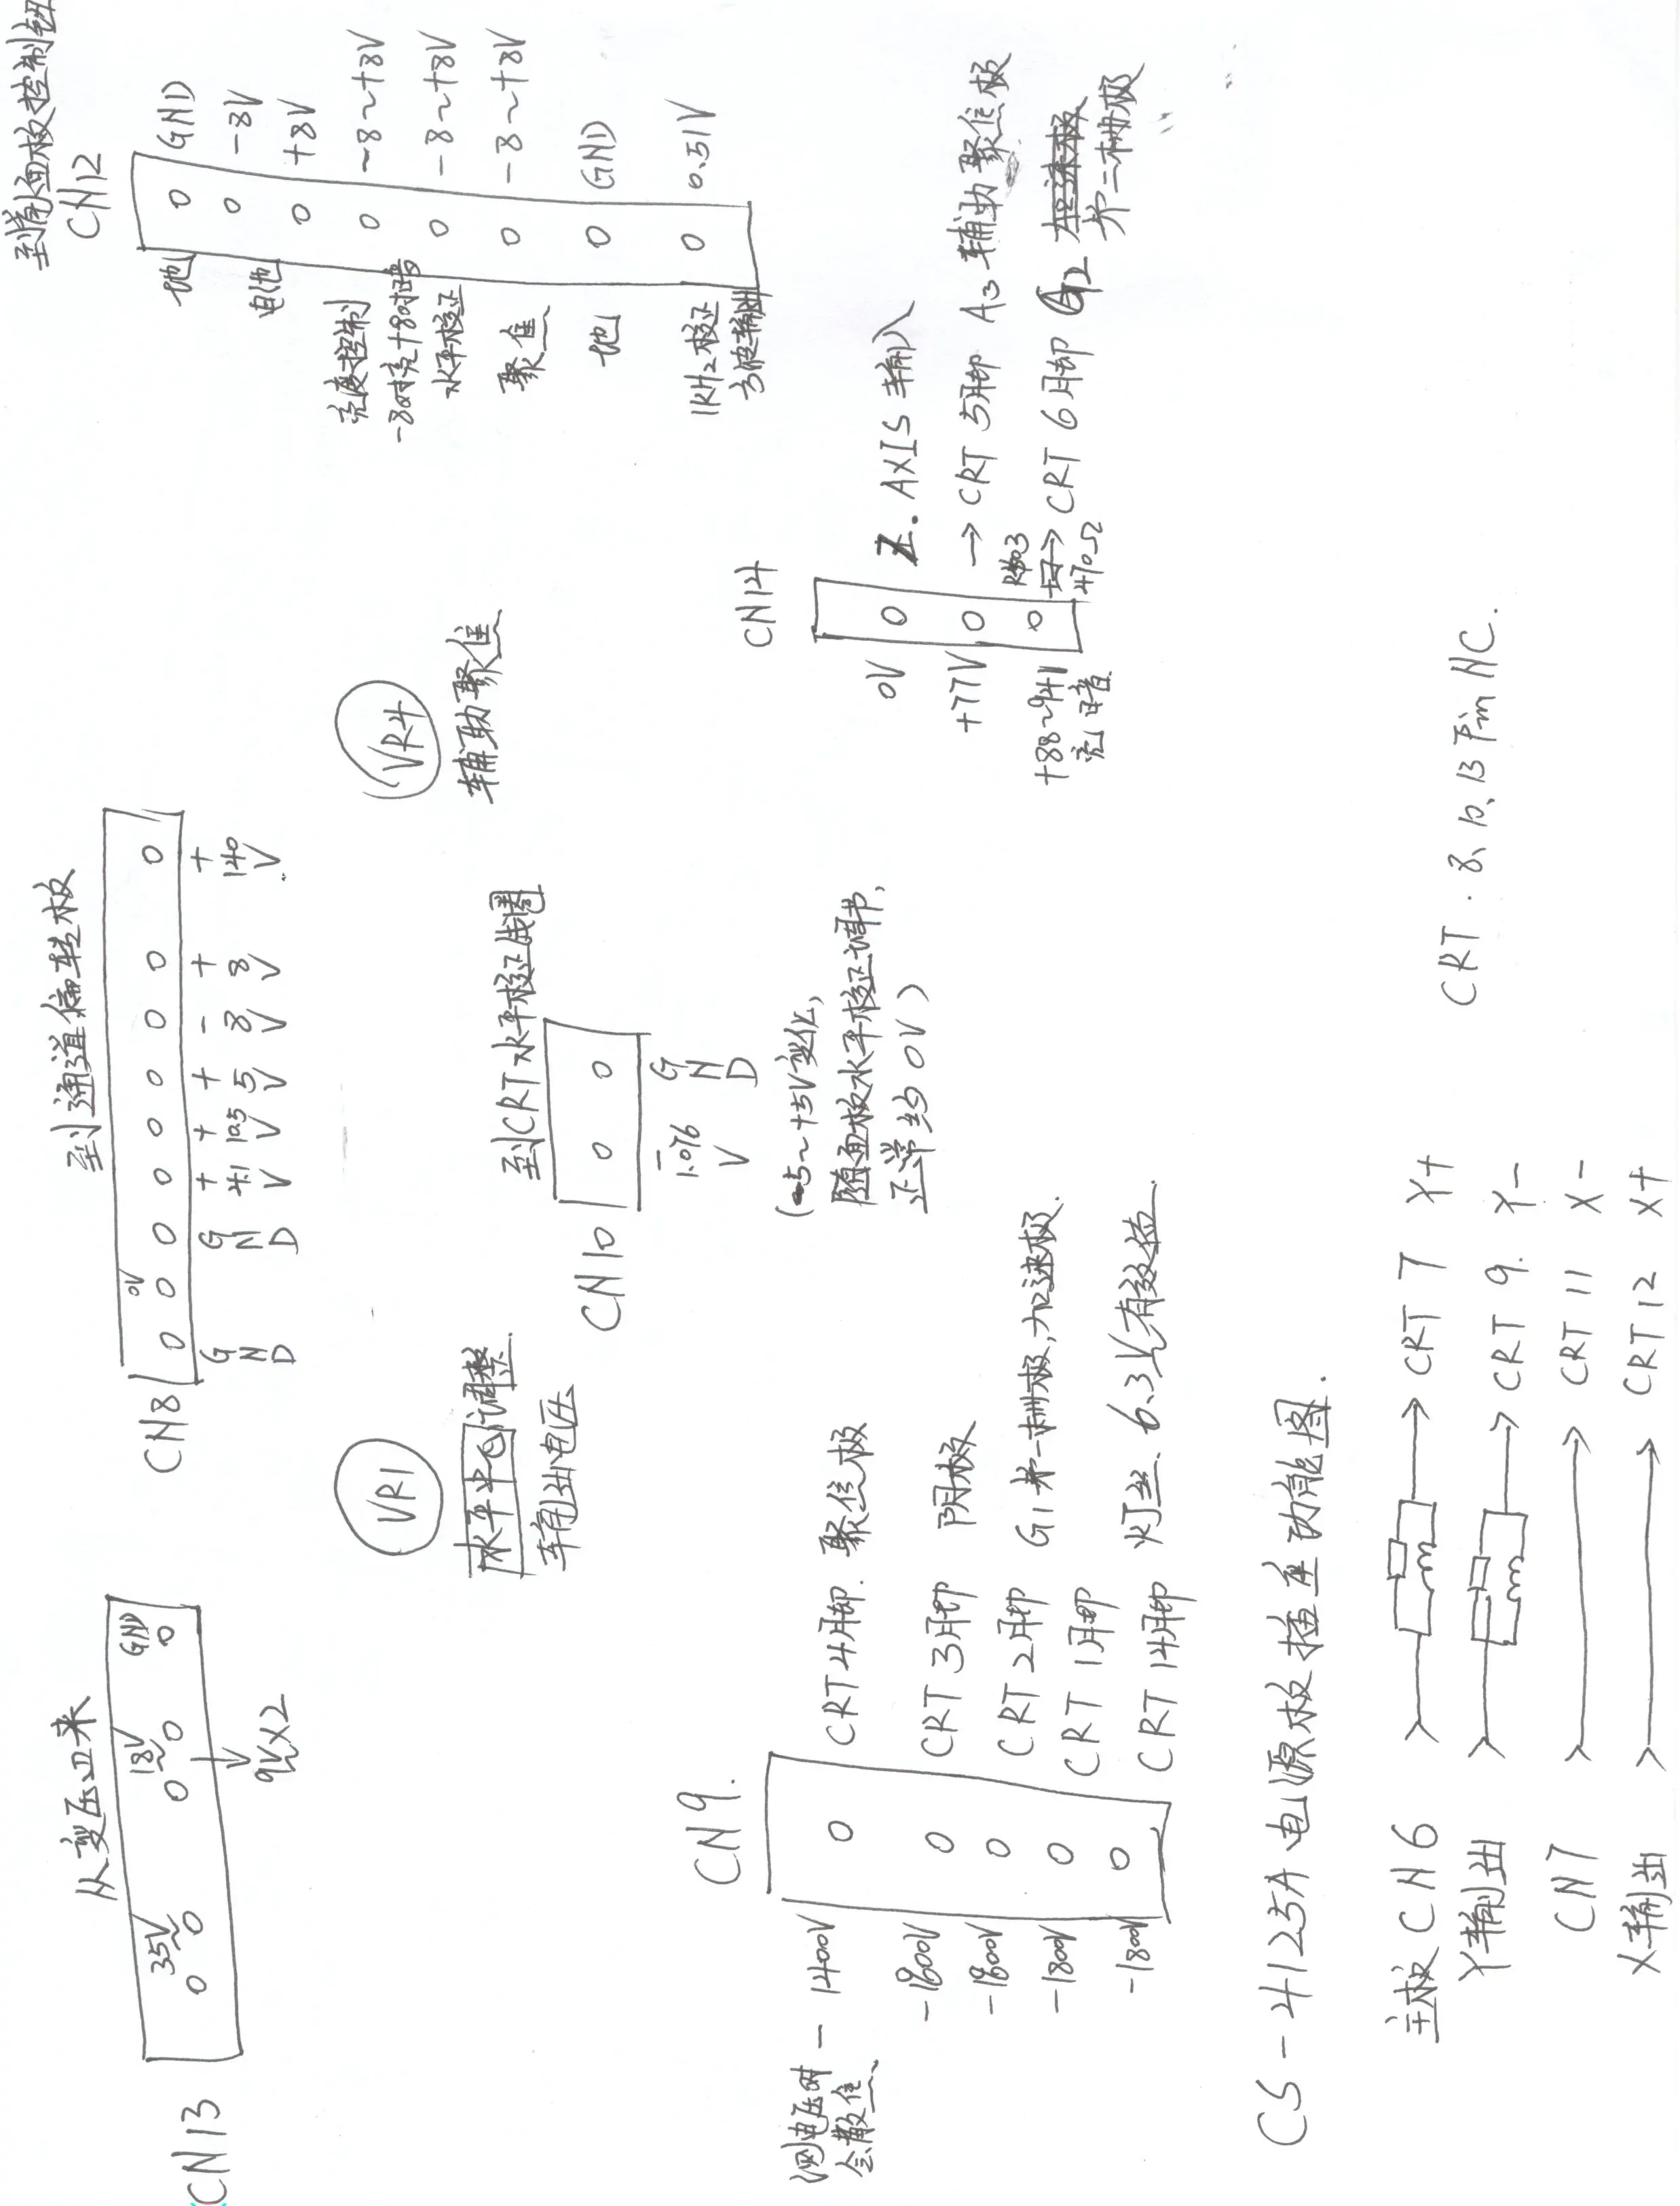 从变压口来
CN13
35V
~
18V
~
GND
9V×2
到通道偏转板
CN8
0V
GND
GND
+4.1V
+10.5V
+5V
-8V
+8V
+140V
到前面板控制钮
CN12
地
电池
亮度控制
-8时亮+8时暗
水平校正
聚焦
地
1KHz校正
方波输出
GND
-8V
+8V
-8~+8V
-8~+8V
-8~+8V
GND
0.51V
VR1
水平中心调整
输出电压
VR4
辅助聚焦
到CRT水平校正线圈
CN10
-1.076V
GND
(-5~+5V变化,
随面板水平校正调节,
正常约0V)
CN9.
测电压时
会散焦
-1400V
CRT 4脚. 聚焦极
CRT 3脚 阴极
CRT 2脚 G1 第一栅极,加速极.
-1800V
CRT 1脚
-1800V
CRT 14脚
灯丝. 6.3V有效值.
CN14
0V
Z. AXIS 输入
+77V
→CRT 5脚 A3 辅助聚焦极
+88~94V
亮 暗
470Ω
→CRT 6脚 G2
第二栅极
CS-4125A 电源板插座功能图.
主板CN6
Y输出
CRT 7 Y+
CRT 9. Y-
CN7
X输出
CRT 11 X-
CRT 12 X+
CRT. 8、10、13 Pin NC.